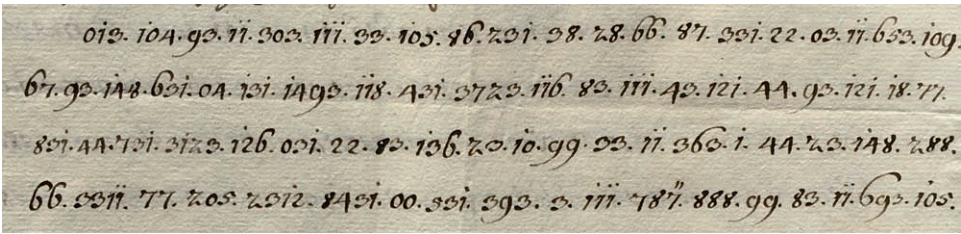 013. 104. 93. 11. 303. 111. 33. 105. 86. 231. 38. 28. 66. 87. 331. 22. 03. 11. 653. 109.
67. 93. 148. 631. 04. 131. 1493. 118. 431. 3723. 116. 83. 111. 43. 121. 44. 93. 121. 18. 77.
831. 44. 731. 3123. 126. 031. 22. 83. 136. 23. 10. 99. 33. 11. 363. 1. 44. 23. 148. 288.
66. 3311. 77. 205. 2312. 8431. 00. 331. 393. 3. 111. 787. 888. 99. 83. 11. 693. 105.